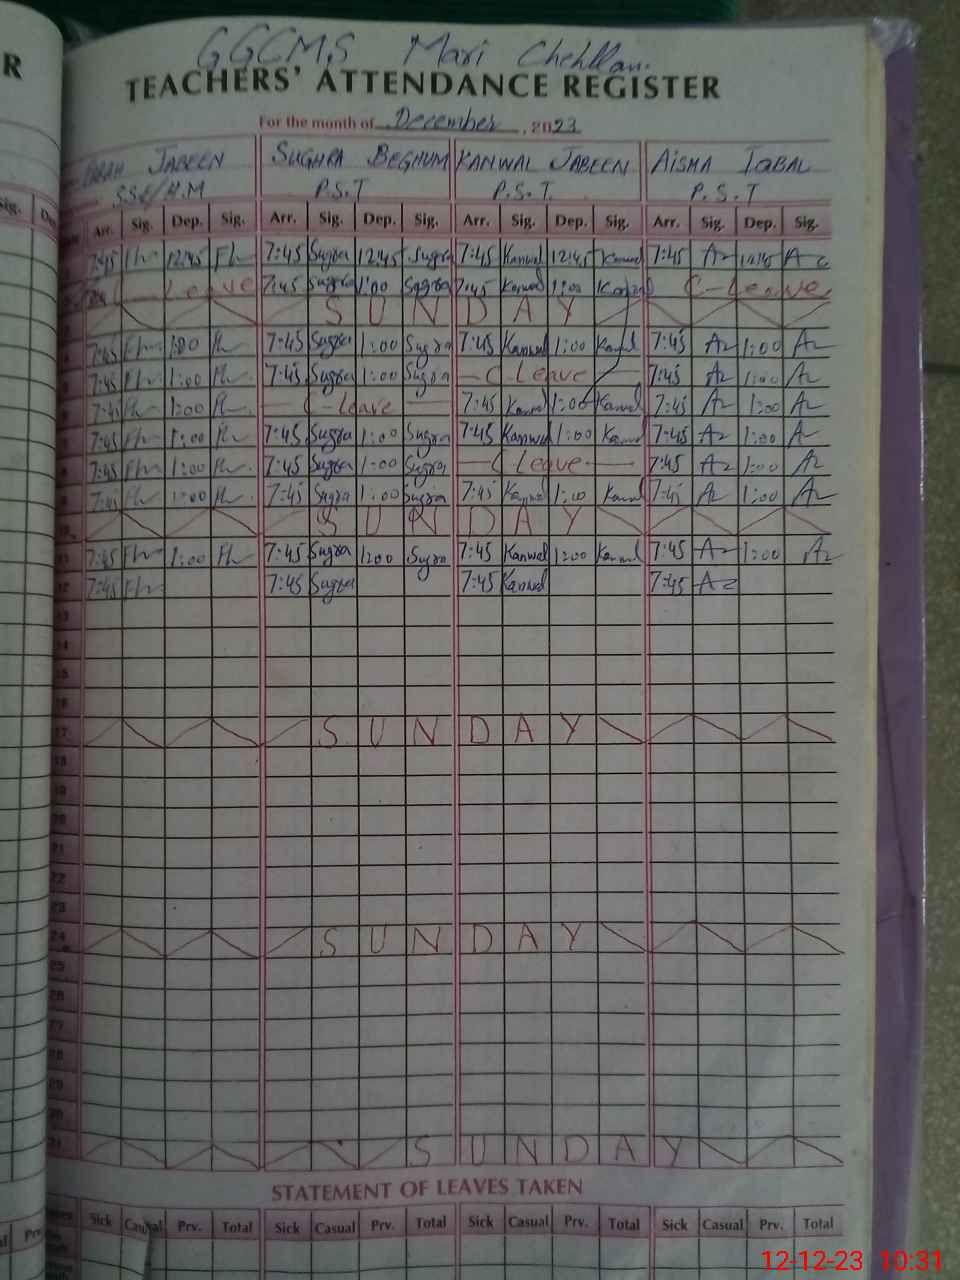 R
GGCMS Mari Chehllan.
TEACHERS' ATTENDANCE REGISTER
For the month of December, 2023
JABEEN SUGHRA BEGHUM KANWAL JABEEN AISMA IQBAL
SSE/H.M P.S.T P.S.T. P.S.T
Sig. Arr. Sig. Dep. Sig. Arr. Sig. Dep. Sig. Arr. Sig. Dep. Sig. Arr. Sig. Dep. Sig.
7:45 12:45 7:45 Sugra 12:45 Sugra 7:45 Kanwal 12:45 Kanwal 7:45 12:45
Leave 7:45 Sugra 1:00 Sugra 7:45 Kanwal 1:00 Kanwal C-Leave
SUNDAY
7:45 1:00 7:45 Sugra 1:00 Sugra 7:45 Kanwal 1:00 Kanwal 7:45 Az 1:00 Az
7:45 1:00 7:45 Sugra 1:00 Sugra C Leave 7:45 Az 1:00 Az
7:45 1:00 C-Leave 7:45 Kanwal 1:00 Kanwal 7:45 Az 1:00 Az
7:45 1:00 7:45 Sugra 1:00 Sugra 7:45 Kanwal 1:00 Kanwal 7:45 Az 1:00 Az
7:45 1:00 7:45 Sugra 1:00 Sugra C Leave 7:45 Az 1:00 Az
7:45 1:00 7:45 Sugra 1:00 Sugra 7:45 Kanwal 1:00 Kanwal 7:45 Az 1:00 Az
10 SUNDAY
11 7:45 1:00 7:45 Sugra 1:00 Sugra 7:45 Kanwal 1:00 Kanwal 7:45 Az 1:00 Az
12 7:45 7:45 Sugra 7:45 Kanwal 7:45 Az
13
14
15
16
17 SUNDAY
18
19
20
21
22
23
24 SUNDAY
25
26
27
28
29
30
31 SUNDAY
STATEMENT OF LEAVES TAKEN
Sick Casual Prv. Total Sick Casual Prv. Total Sick Casual Prv. Total Sick Casual Prv. Total
12-12-23 10:31